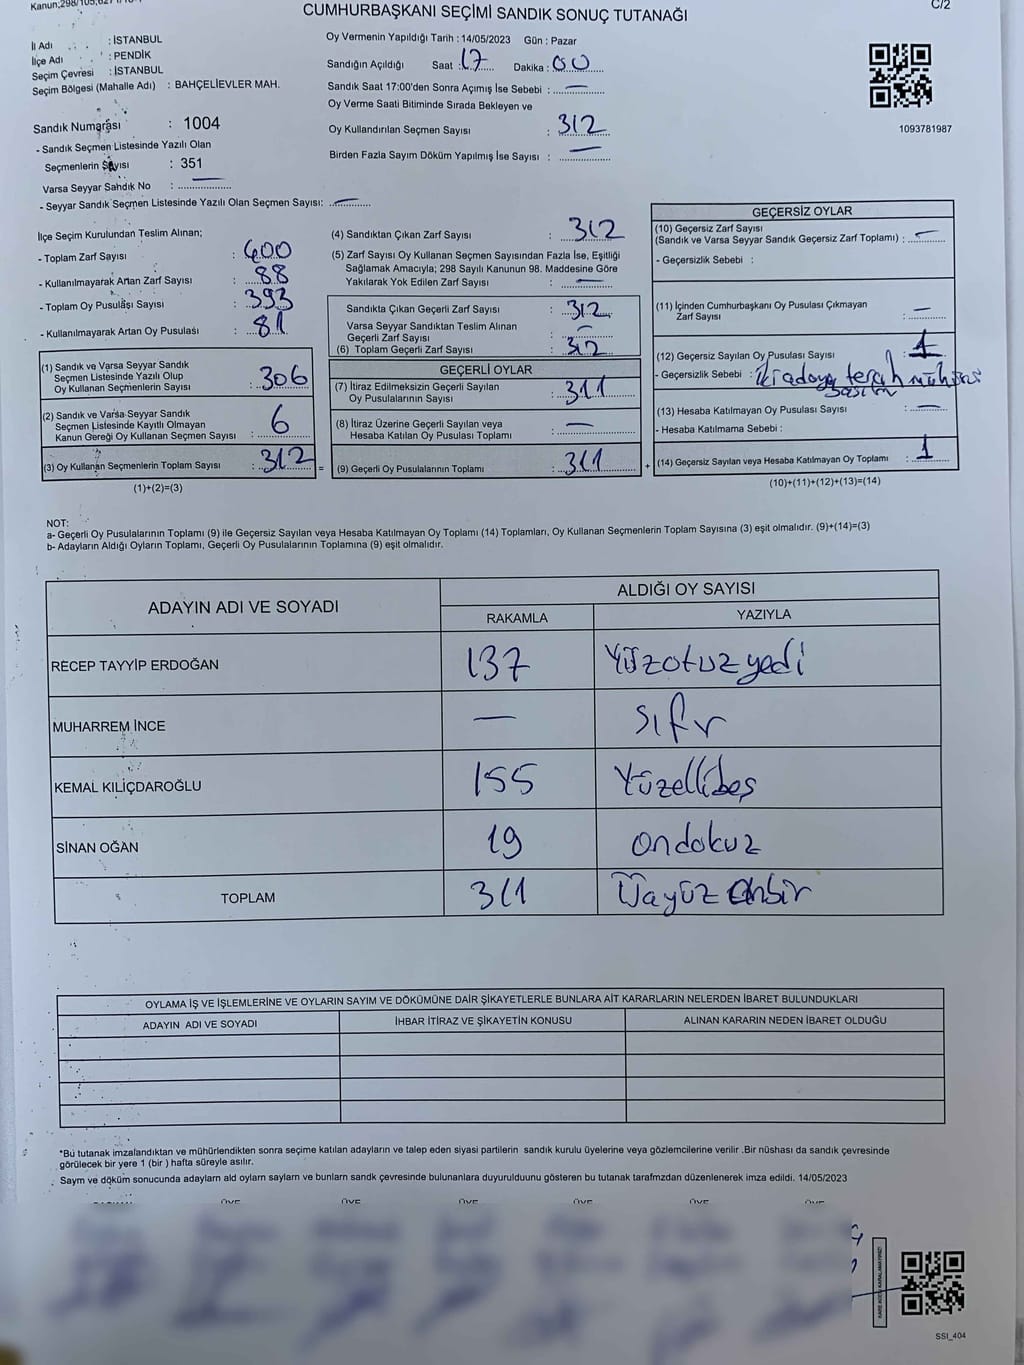 CUMHURBAŞKANI SEÇİMİ SANDIK SONUÇ TUTANAĞI
C/2
İl Adı : İSTANBUL
İlçe Adı : PENDİK
Seçim Çevresi : İSTANBUL
Seçim Bölgesi (Mahalle Adı) : BAHÇELİEVLER MAH.
Oy Vermenin Yapıldığı Tarih : 14/05/2023 Gün : Pazar
Sandığın Açıldığı Saat : 17 Dakika : 00
Sandık Saat 17:00'den Sonra Açımış İse Sebebi : —
Oy Verme Saati Bitiminde Sırada Bekleyen ve
Oy Kullandırılan Seçmen Sayısı : 312
Birden Fazla Sayım Döküm Yapılmış İse Sayısı : —
1093781987
Sandık Numarası : 1004
- Sandık Seçmen Listesinde Yazılı Olan
Seçmenlerin Sayısı : 351
Varsa Seyyar Sandık No : —
- Seyyar Sandık Seçmen Listesinde Yazılı Olan Seçmen Sayısı: —
İlçe Seçim Kurulundan Teslim Alınan;
- Toplam Zarf Sayısı : 400
- Kullanılmayarak Artan Zarf Sayısı : 88
- Toplam Oy Pusulası Sayısı : 393
- Kullanılmayarak Artan Oy Pusulası : 81
(1) Sandık ve Varsa Seyyar Sandık
Seçmen Listesinde Yazılı Olup
Oy Kullanan Seçmenlerin Sayısı : 306
(2) Sandık ve Varsa Seyyar Sandık
Seçmen Listesinde Kayıtlı Olmayan
Kanun Gereği Oy Kullanan Seçmen Sayısı : 6
(3) Oy Kullanan Seçmenlerin Toplam Sayısı : 312 =
(1)+(2)=(3)
(4) Sandıktan Çıkan Zarf Sayısı : 312
(5) Zarf Sayısı Oy Kullanan Seçmen Sayısından Fazla İse, Eşitliği
Sağlamak Amacıyla; 298 Sayılı Kanunun 98. Maddesine Göre
Yakılarak Yok Edilen Zarf Sayısı : —
Sandıkta Çıkan Geçerli Zarf Sayısı : 312
Varsa Seyyar Sandıktan Teslim Alınan
Geçerli Zarf Sayısı : —
(6) Toplam Geçerli Zarf Sayısı : 312
GEÇERLİ OYLAR
(7) İtiraz Edilmeksizin Geçerli Sayılan
Oy Pusulalarının Sayısı : 311
(8) İtiraz Üzerine Geçerli Sayılan veya
Hesaba Katılan Oy Pusulası Toplamı : —
(9) Geçerli Oy Pusulalarının Toplamı : 311 +
GEÇERSİZ OYLAR
(10) Geçersiz Zarf Sayısı
(Sandık ve Varsa Seyyar Sandık Geçersiz Zarf Toplamı) : —
- Geçersizlik Sebebi :
(11) İçinden Cumhurbaşkanı Oy Pusulası Çıkmayan
Zarf Sayısı : —
(12) Geçersiz Sayılan Oy Pusulası Sayısı : 1
- Geçersizlik Sebebi : iki adaya tercih mühürü
(13) Hesaba Katılmayan Oy Pusulası Sayısı : —
- Hesaba Katılmama Sebebi :
(14) Geçersiz Sayılan veya Hesaba Katılmayan Oy Toplamı : 1
(10)+(11)+(12)+(13)=(14)
NOT:
a- Geçerli Oy Pusulalarının Toplamı (9) ile Geçersiz Sayılan veya Hesaba Katılmayan Oy Toplamı (14) Toplamları, Oy Kullanan Seçmenlerin Toplam Sayısına (3) eşit olmalıdır. (9)+(14)=(3)
b- Adayların Aldığı Oyların Toplamı, Geçerli Oy Pusulalarının Toplamına (9) eşit olmalıdır.
ADAYIN ADI VE SOYADI
ALDIĞI OY SAYISI
RAKAMLA YAZIYLA
RECEP TAYYİP ERDOĞAN 137 Yüzotuzyedi
MUHARREM İNCE — sıfır
KEMAL KILIÇDAROĞLU 155 Yüzellibeş
SİNAN OĞAN 19 ondokuz
TOPLAM 311 Üçyüz onbir
OYLAMA İŞ VE İŞLEMLERİNE VE OYLARIN SAYIM VE DÖKÜMÜNE DAİR ŞİKAYETLERLE BUNLARA AİT KARARLARIN NELERDEN İBARET BULUNDUKLARI
ADAYIN ADI VE SOYADI İHBAR İTİRAZ VE ŞİKAYETİN KONUSU ALINAN KARARIN NEDEN İBARET OLDUĞU
*Bu tutanak imzalandıktan ve mühürlendikten sonra seçime katılan adayların ve talep eden siyasi partilerin sandık kurulu üyelerine veya gözlemcilerine verilir .Bir nüshası da sandık çevresinde
görülecek bir yere 1 (bir ) hafta süreyle asılır.
Saym ve döküm sonucunda adaylarn ald oylarn saylarn ve bunlarn sandk çevresinde bulunanlara duyurulduunu gösteren bu tutanak tarafmzdan düzenlenerek imza edildi. 14/05/2023
ÜYE ÜYE ÜYE ÜYE ÜYE ÜYE
SSI_404